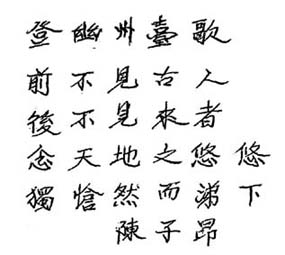 登幽州臺歌
前不見古人
後不見來者
念天地之悠悠
獨愴然而涕下
陳子昂